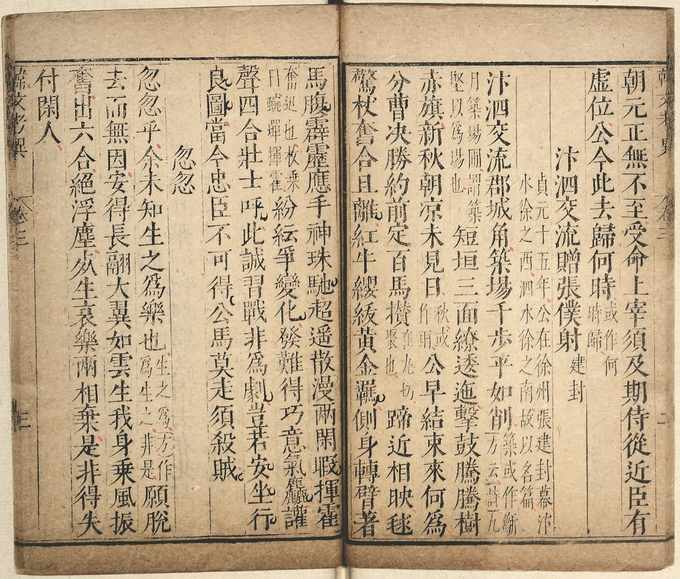 朝元正無不至受命上宰須及期侍從近臣有
虛位公今此去歸何時或作何時歸
汴泗交流贈張僕射建封
貞元十五年公在徐州張建封幕汴
水徐之西泗水徐之南故以名篇
汴泗交流郡城角築場千步平如削築或作斸方云詩九
月築場圃謂築堅以為場也短垣三面繚逶迤擊鼓騰騰樹
赤旗新秋朝涼未見日秋或作雨公早結束來何爲
分曹決勝約前定百馬攢在九切聚也蹄近相映毬
驚杖奮合且離紅牛纓紱黃金羈側身轉臂著
馬腹霹靂應手神珠馳超遥散漫兩閑暇揮霍
奮迅也枚乗曰蜿蟬揮霍紛紜爭變化發難得巧意氣麤讙
聲四合壯士呼此誠習戰非爲劇豈若安坐行
良圖當今忠臣不可得公馬莫走須殺賊
忽忽
忽忽乎余未知生之爲樂也生之爲方作爲生之非是願脫
去而無因安得長翮大翼如雲生我身乗風振
奮出六合絕浮塵死生哀樂兩相棄是非得失
付閑人
韓文考異 卷三